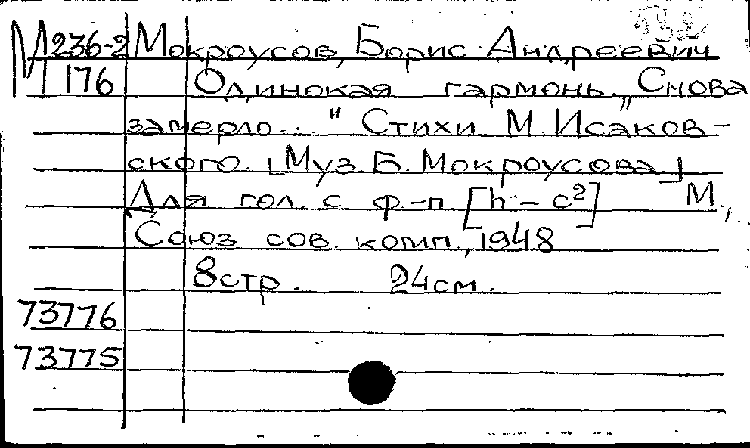 М 236-2 Мокроусов, Борис Андреевич
176 Одинокая гармонь. „Снова
замерло..." Стихи М. Исаков-
ского. [Муз. Б. Мокроусова]
Для гол. с ф-п. [h - c²] М.,
Союз сов. комп., 1948
8 стр. 24 см.
73776
73775